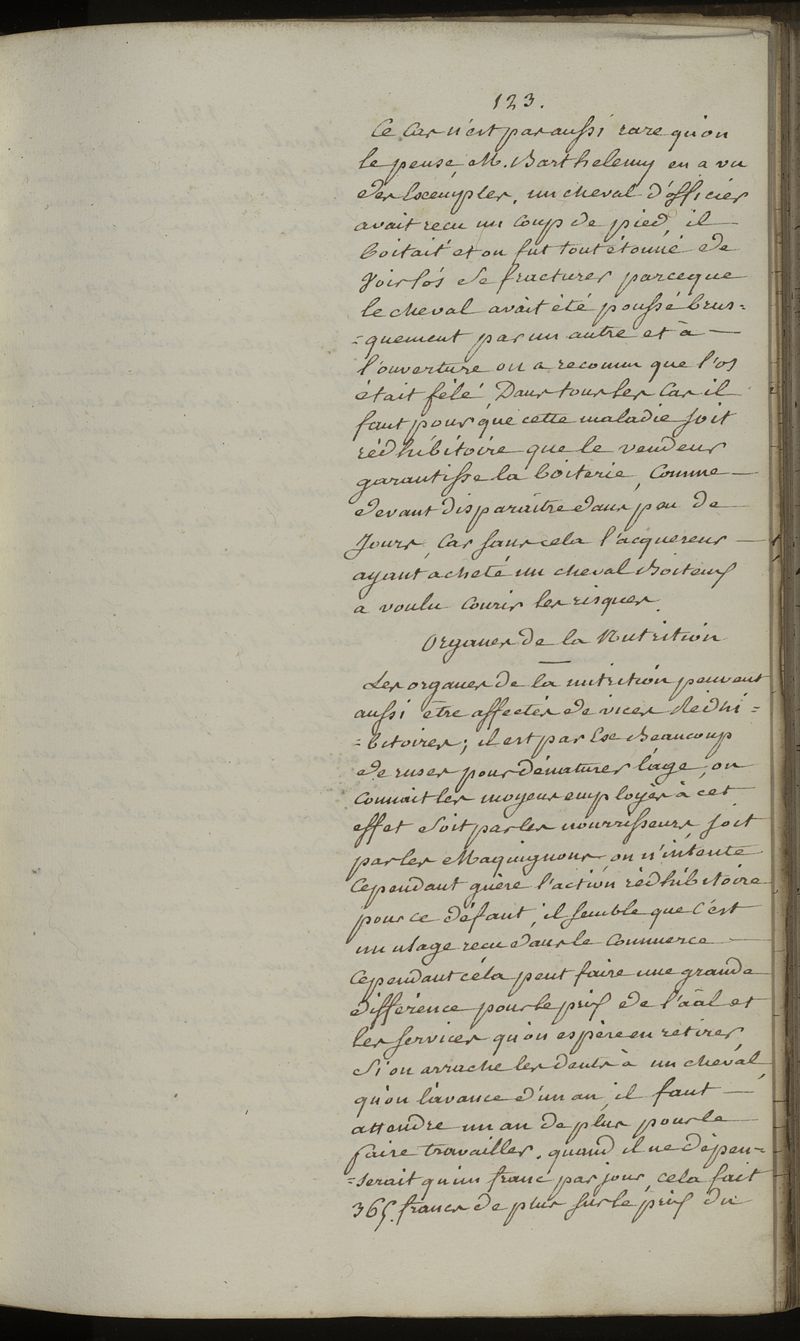 123.
Ce Cas n'est pas aussi rare qu'on
le pense M. Barthelemy en a vu
des Exemples, un cheval d'officier
avait recu un coup de pied, il —
boitait et on fut tout étonné de
voir l'os se fracturer parceque
le cheval avait été poussé brus=
=quement par un autre et à —
l'ouverture on a reconnu que l'os
était fêlé Dans tous les Cas il
faut pour que cette maladie soit
rédhibitoire que le vendeur
garantisse la boiterie, Comme —
devant disparaitre dans peu de
Jours, Car sans cela l'acquereur —
ayant acheté un cheval Boiteux
a voulu Courir les risques.
Organes de la Nutrition
Les organes de la nutrition peuvent
aussi être affectés de vices Redhi=
=bitoires; il est par Beaucoup
de ruses pour Dénaturer l'âge, on
Connait les moyens employés à cet
effet soit par les nourrisseurs soit
par les Maquignons on n'intente
Cependant guère l'action rédhibitoire
pour ce défaut, il semble que C'est
un usage recu dans le Commerce —
Cependant céla peut faire une grande
différence pour le prix de l' et
les services qu'on espère en retirer,
Si on arrache les dents à un cheval,
qu'on l'avance d'un an, il faut —
attendre un an de plus pour le
faire travailler, quand il ne dépen-
=serait qu'un franc par jour, cela fait
365. francs de plus sur le prix du